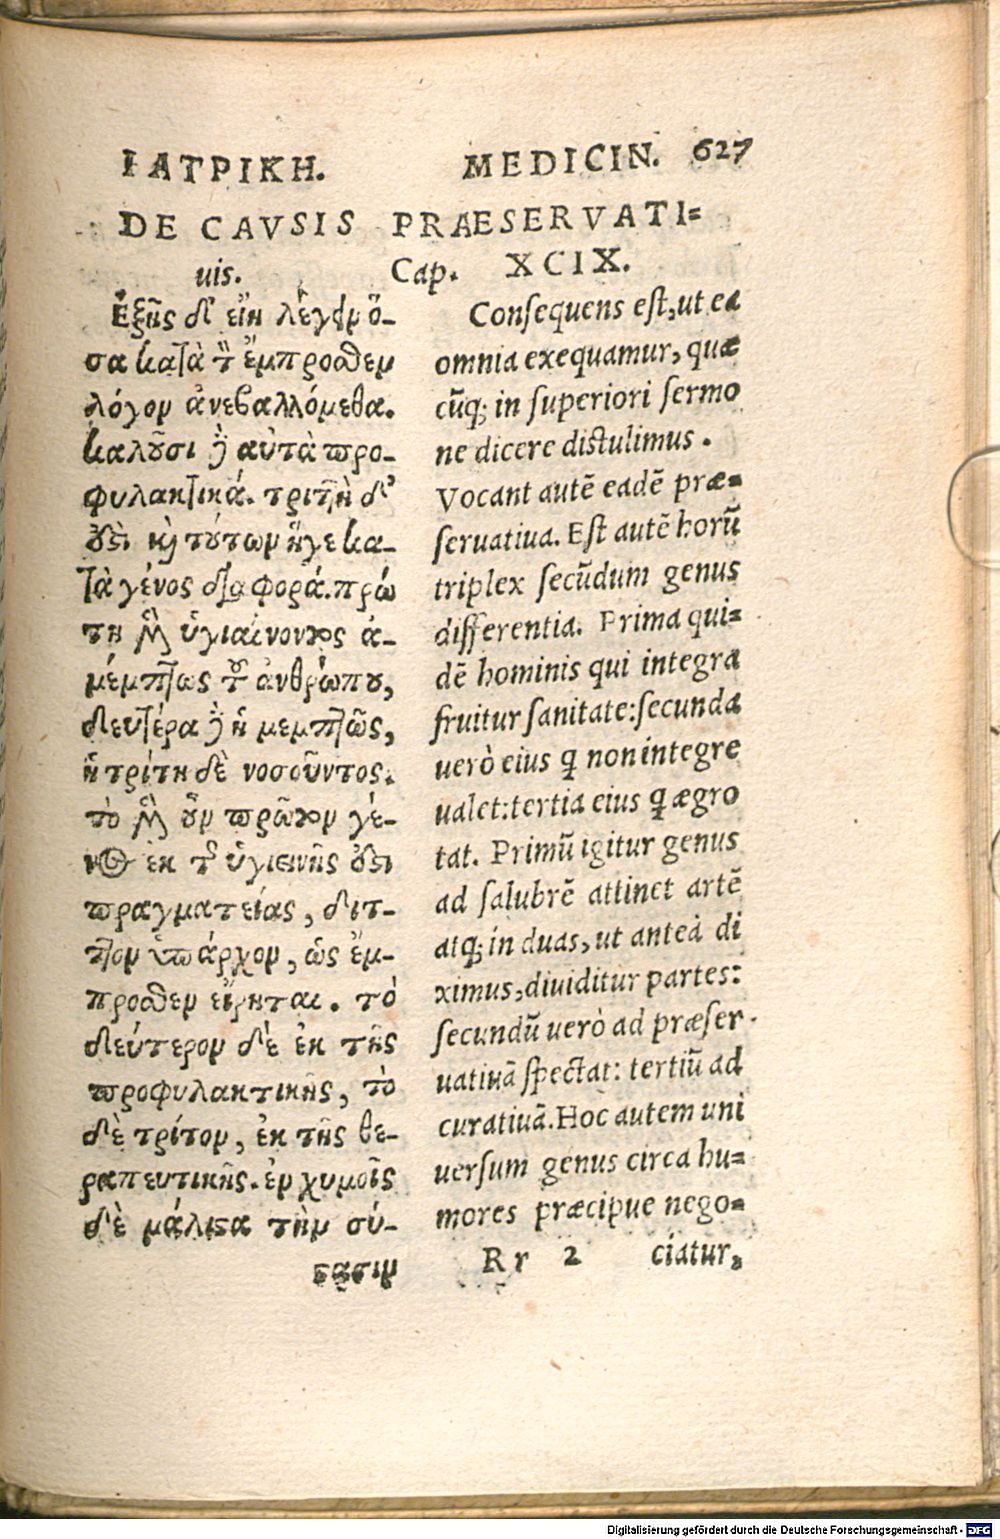 ΙΑΤΡΙΚΗ.
MEDICIN. 627
DE CAVSIS PRAESERVATI=
uis. Cap. XCIX.
Εξῆς δ' εἴη λέγειν ὅ-
σα κατὰ τὸν ἔμπροσθεν
λόγον ἀνεβαλλόμεθα.
καλοῦσι δὲ αὐτὰ προ-
φυλακτικά. τριτὴ δ'
ἐστὶ καὶ τούτων ἥγε κα-
τὰ γένος διαφορά. πρώ
τη μὲν ὑγιαίνοντος ἀ-
μέμπτως τοῦ ἀνθρώπου,
δευτέρα δὲ ἡ μεμπτῶς,
ἡ τρίτη δὲ νοσοῦντος.
τὸ μὲν οὖν πρῶτον γέ-
νος ἐκ τῆς ὑγιεινῆς ἐστι
πραγματείας, διτ-
τὸν ὑπάρχον, ὡς ἔμ-
προσθεν εἴρηται. τὸ
δεύτερον δὲ ἐκ τῆς
προφυλακτικῆς, τὸ
δὲ τρίτον, ἐκ τῆς θε-
ραπευτικῆς. ἐν χυμοῖς
δὲ μάλιστα τὴν σύ-
στασιν
Consequens est, ut ea
omnia exequamur, quæ
cũq; in superiori sermo
ne dicere distulimus.
Vocant autẽ eadẽ præ=
seruatiua. Est autẽ horũ
triplex secũdum genus
differentia. Prima qui=
dẽ hominis qui integra
fruitur sanitate: secunda
uerò eius q̃ non integre
ualet: tertia eius q̃ ægro
tat. Primũ igitur genus
ad salubrẽ attinet artẽ
atq; in duas, ut anteà di
ximus, diuiditur partes:
secundũ uerò ad præser
uatiuã spectat: tertiũ ad
curatiuã. Hoc autem uni
uersum genus circa hu=
mores præcipue nego=
Rr 2 ciatur,
Digitalisierung gefördert durch die Deutsche Forschungsgemeinschaft - DFG